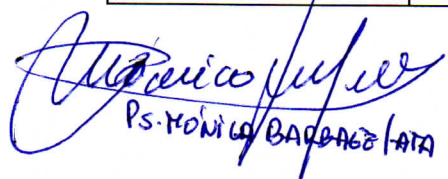 Mónica
PS. MÓNICA BARBAGELATA